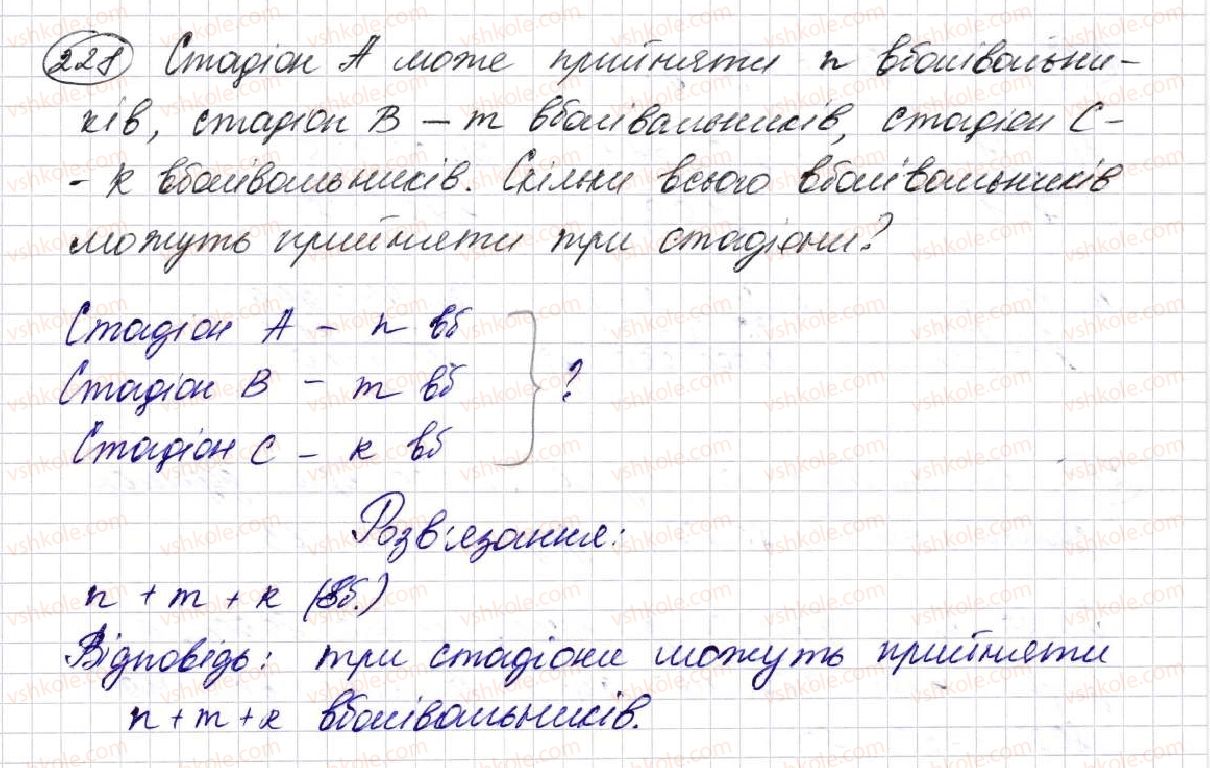 228 Стадіон А може прийняти n вболівальни-
ків, стадіон В – m вболівальників, стадіон С –
- k вболівальників. Скільки всього вболівальників
можуть прийняти три стадіони?
Стадіон А – n вб
Стадіон В – m вб
Стадіон С – k вб
?
Розв'язання:
n + m + k (вб.)
Відповідь: три стадіони можуть прийняти
n + m + k вболівальників.